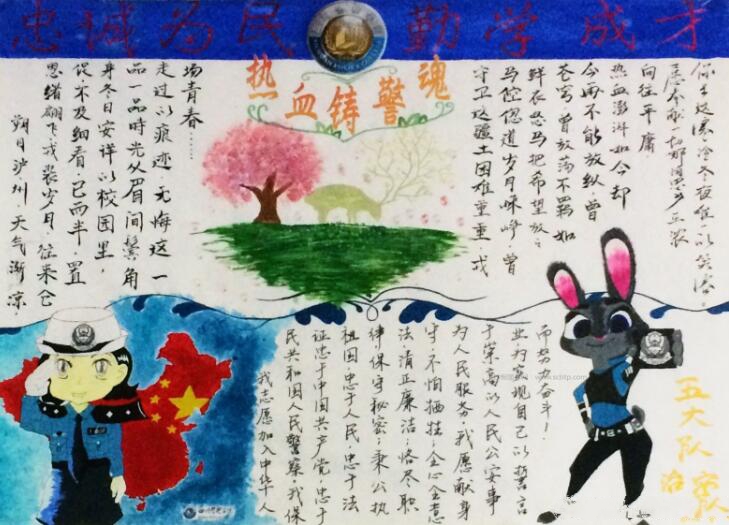 忠诚为民 勤学成才
热血铸警魂
向往平庸
热血澎湃如今却
今雨不能放纵曾
苍穹曾放荡不羁如
鲜衣怒马把希望放
马倥偬道岁月峥嵘曾
守卫这疆土困难重重戎
场青春……
走过以痕迹无悔这一
品一品时光从眉间鬓角
身冬日安详以校园里，
促不及细看，已而半，置
思绪翩飞，戎装岁月，往来仓
朔日泸州天气渐凉
我志愿加入中华人
民共和国人民警察。我保
证忠于中国共产党，忠于
祖国，忠于人民，忠于法
律保守秘密；秉公执
法清正廉洁；恪尽职
守，不怕牺牲；全心全意
为人民服务。我愿献身
于崇高以人民公安事
业为实现自己以誓言
而努力奋斗！
五大队
治